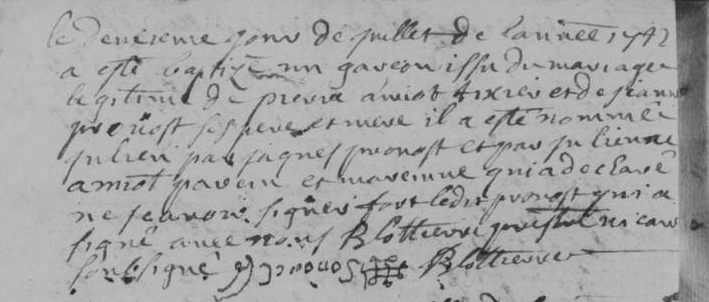 le deuxieme jour de juillet de lannee 1742
a esté baptizé un garcon issu du mariage
legitime de pierre amiot tixier et de jeanne
provost ses pere et mere il a esté nommé
julien par jaques provost et par julienne
amiot parein et mareinne qui a declaré
ne scavoir signer fort ledit provost qui a
signé avec nous Blottierre vicair
soubsigné provost Blottierre